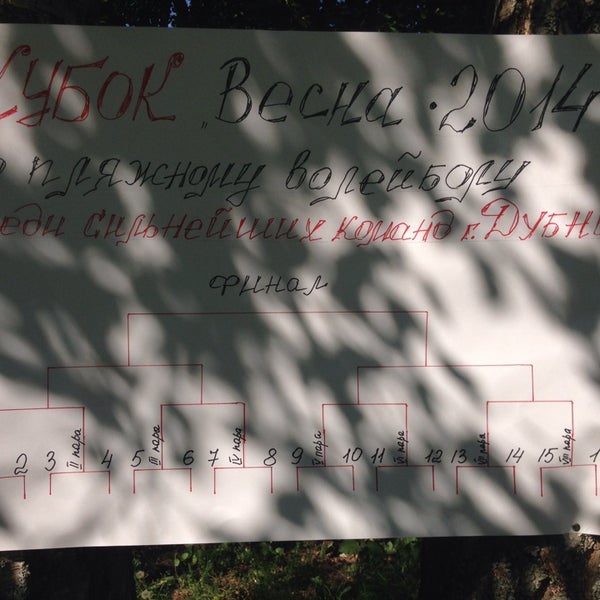 КУБОК „Весна · 2014
о пляжному волейболу
еди сильнейших команд г. ДУБН
ФИНАЛ
II пара III пара IV пара V пара VI пара VII пара VIII пара
2 3 4 5 6 7 8 9 10 11 12 13 14 15 1